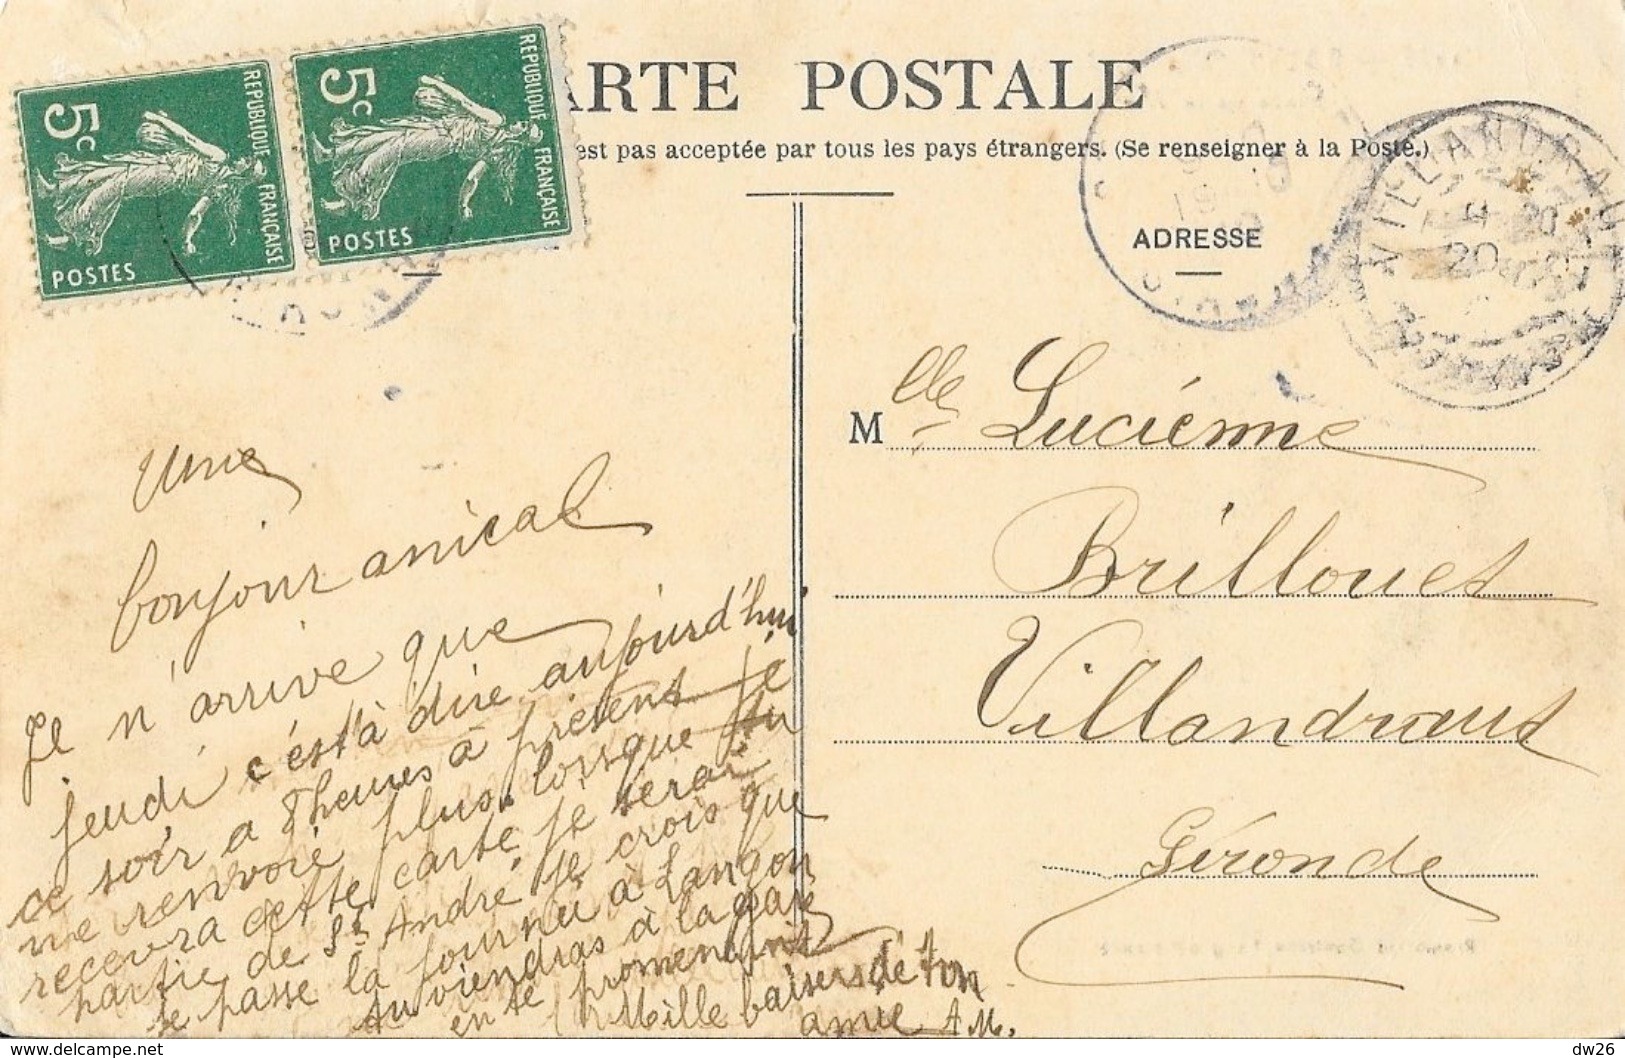 5c
POSTES
REPUBLIQUE FRANÇAISE
5c
POSTES
REPUBLIQUE FRANÇAISE
ARTE POSTALE
est pas acceptée par tous les pays étrangers. (Se renseigner à la Poste.)
ADRESSE
VILLANDRAUT
20
Mlle Lucienne
Brillouet
Villandraut
Gironde
Une
bonjour amical
Je n'arrive que
jeudi c'est à dire aujourd'hui
ce soir a 8 heures à présent Je
me renvoie plus. lorsque tu
recevra cette carte je serai
partie de St André je crois que
Je passe la journée à Langon
tu viendras à la gare
en te promenant
Mille baisers de ton
amie A.M.
dw26